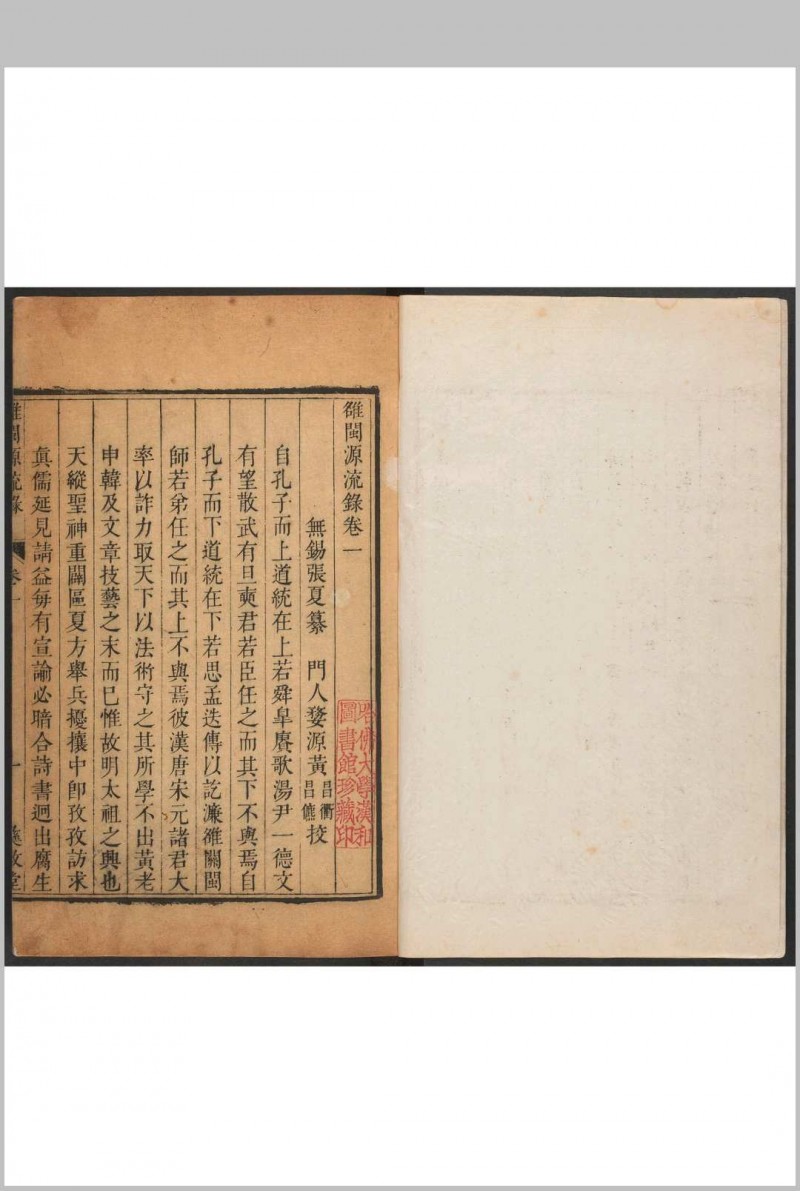 雒閩源流錄卷一
無錫張夏纂　門人婺源黃昌衢昌㒓挍
自孔子而上道統在上若舜臯賡歌湯尹一德文
有望散武有旦奭君若臣任之而其下不與焉自
孔子而下道統在下若思孟迭傳以訖濂雒關閩
師若弟任之而其上不與焉彼漢唐宋元諸君大
率以詐力取天下以法術守之其所學不出黃老
申韓及文章技藝之末而已惟故明太祖之興也
天縱聖神重闢區夏方舉兵擾攘中卽孜孜訪求
眞儒延見請益每有宣諭必暗合詩書迥出腐生
雒閩源流錄
卷一
一
堂
哈佛大學漢和
圖書館珍藏印